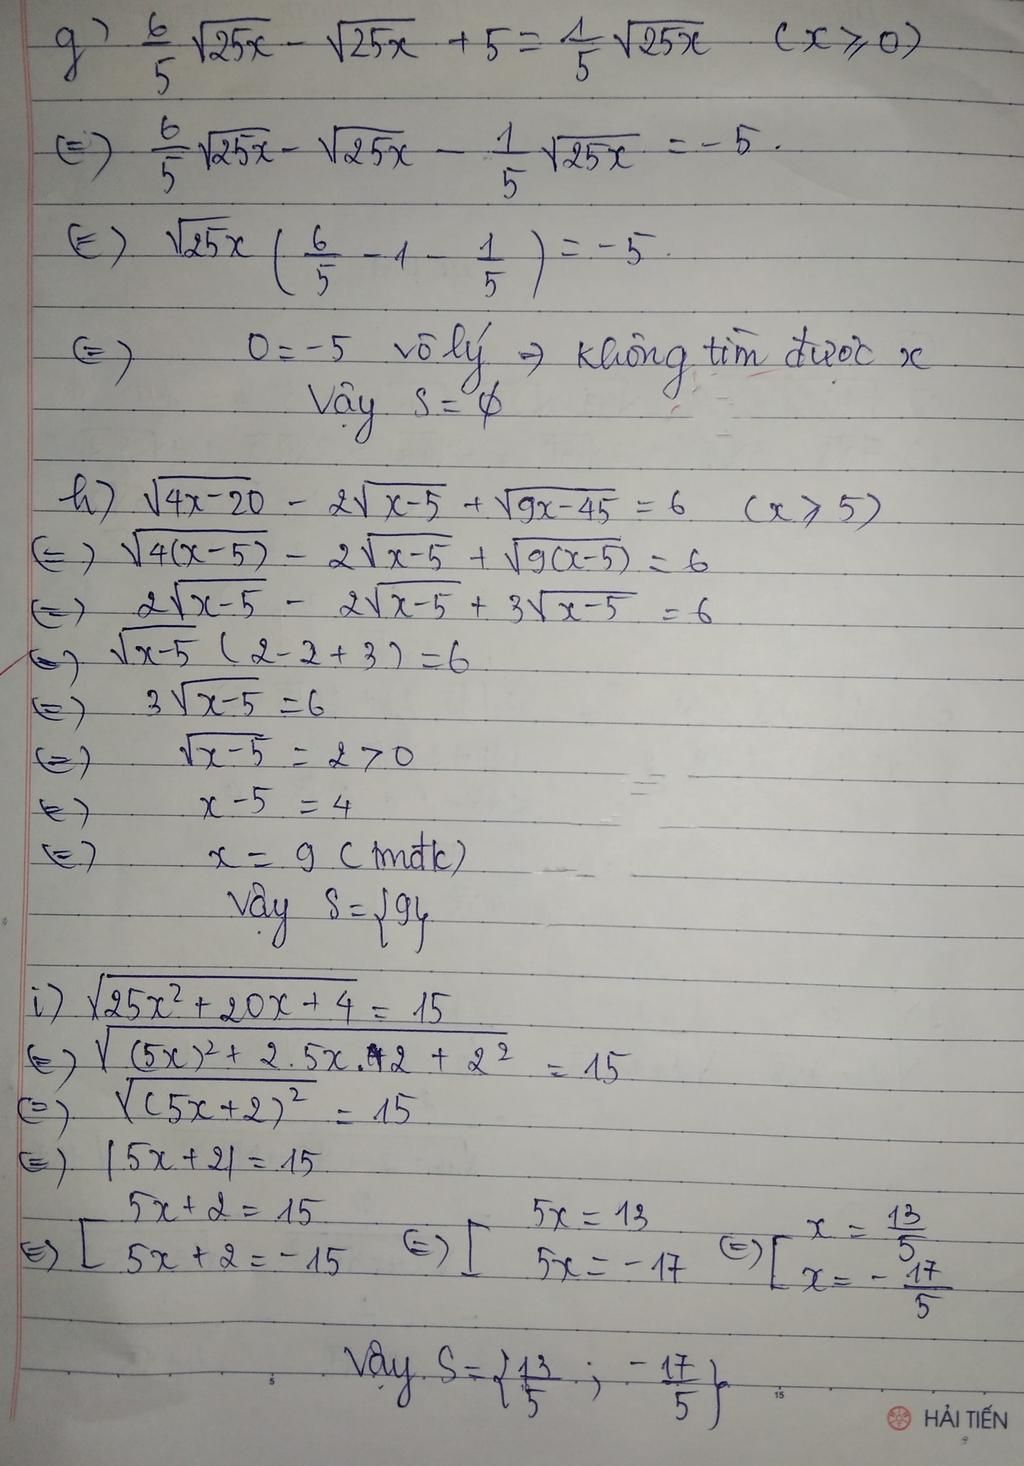 g) 6/5 √25x - √25x + 5 = 1/5 √25x (x ⩾ 0)
(=) 6/5 √25x - √25x - 1/5 √25x = -5.
(=) √25x (6/5 - 1 - 1/5) = -5.
(=) 0 = -5 vô lý → không tìm được x
Vậy S = ∅
h) √4x-20 - 2√x-5 + √9x-45 = 6 (x ⩾ 5)
(=) √4(x-5) - 2√x-5 + √9(x-5) = 6
(=) 2√x-5 - 2√x-5 + 3√x-5 = 6
(=) √x-5 (2-2+3) = 6
(=) 3√x-5 = 6
(=) √x-5 = 2 > 0
(=) x-5 = 4
(=) x = 9 (tmđk)
Vậy S = {9}
i) √25x²+20x+4 = 15
(=) √(5x)²+2.5x.2+2² = 15
(=) √(5x+2)² = 15
(=) |5x+2| = 15
(=) [ 5x+2 = 15 (=) [ 5x = 13 (=) [ x = 13/5
5x+2 = -15 5x = -17 x = -17/5
Vậy S = {13/5 ; -17/5}
5 15
HẢI TIẾN